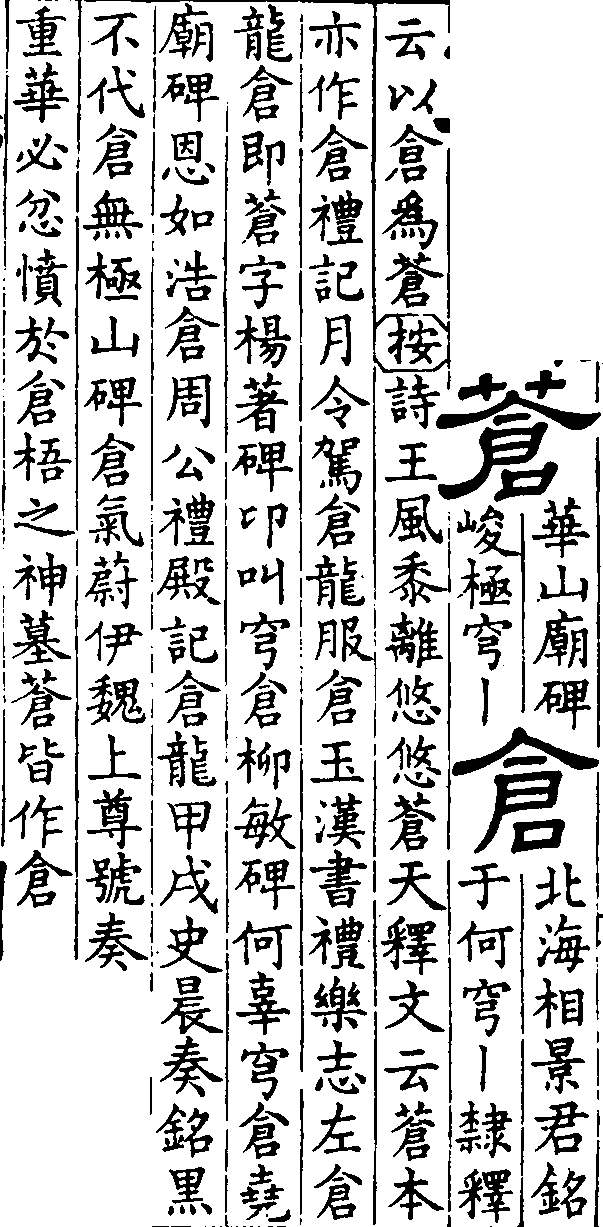 蒼
華山廟碑
峻極穹丨
倉
北海相景君銘
于何穹丨隸釋
云以倉爲蒼按詩王風黍離悠悠蒼天釋文云蒼本
亦作倉禮記月令駕倉龍服倉玉漢書禮樂志左倉
龍倉即蒼字楊著碑卬叫穹倉柳敏碑何辜穹倉堯
廟碑恩如浩倉周公禮殿記倉龍甲戌史晨奏銘黑
不代倉無極山碑倉氣蔚伊魏上尊號奏
重華必忿憤於倉梧之神墓蒼皆作倉